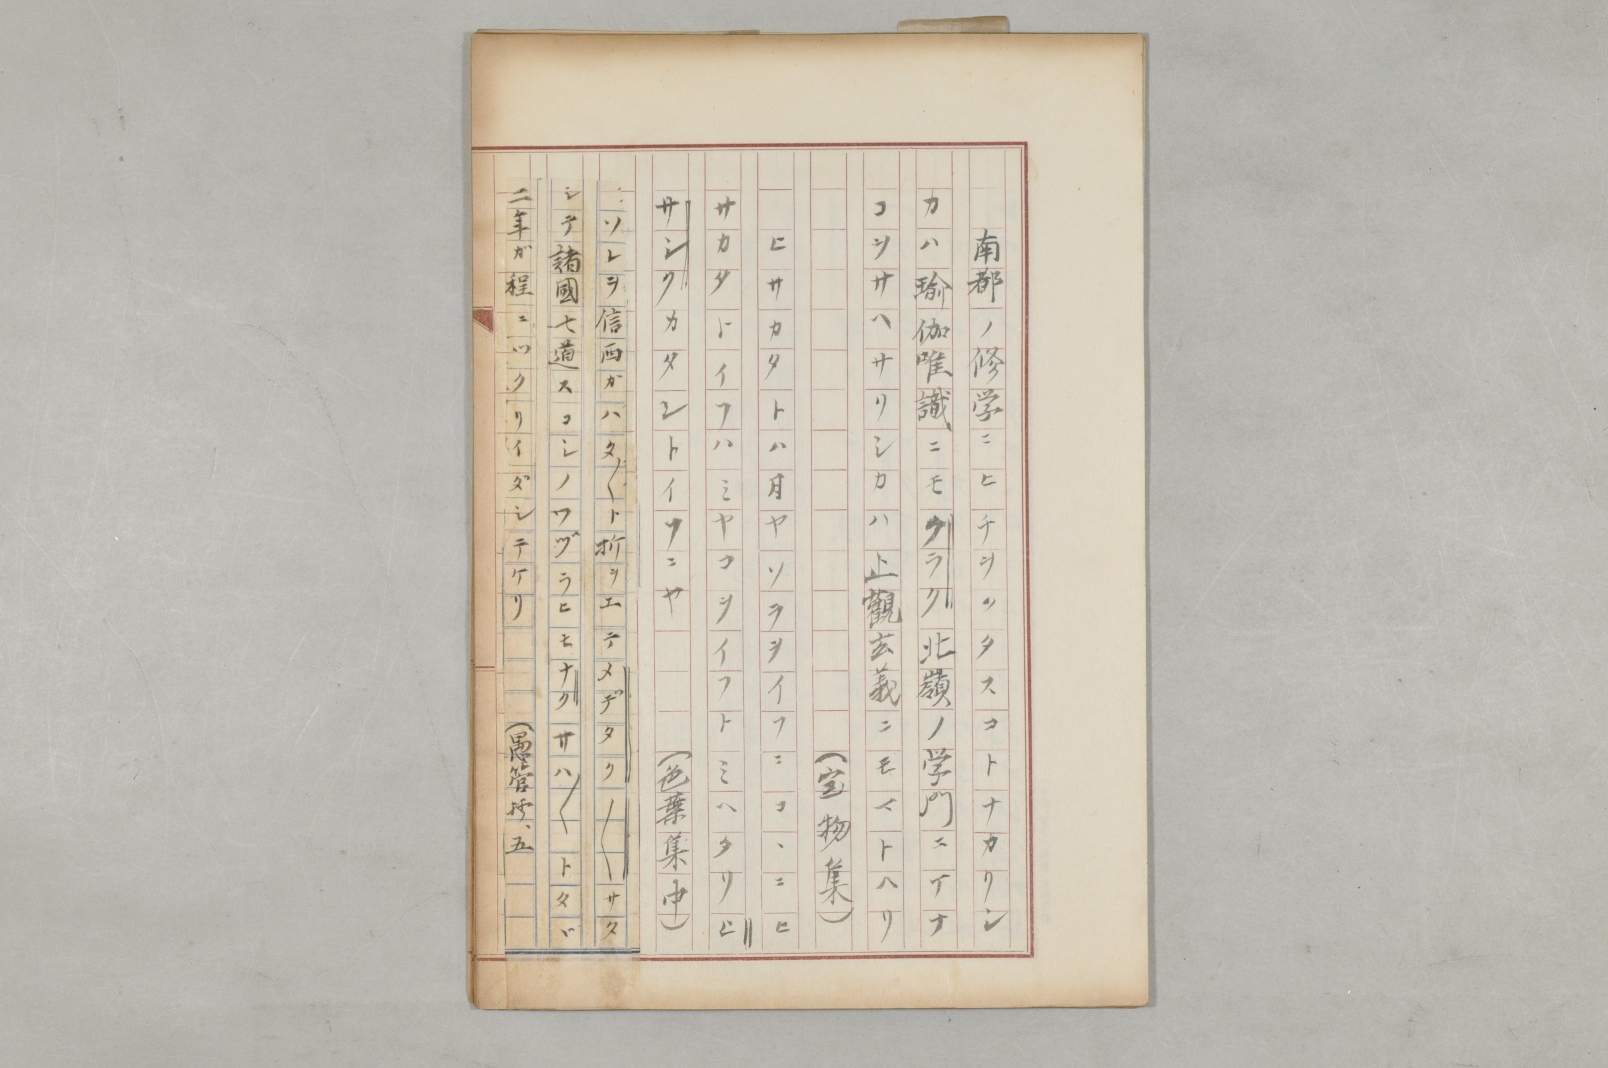 南都ノ修学ニヒチヲッタスコトナカリシ
カハ瑜伽唯識ニモクラク北嶺ノ学門ニイナ
コヲサヘサリシカハ止觀玄義ニモマトヘリ
(宝物集)
ヒサカタトハ月ヤソラヲイフニコヽニヒ
サカタトイフハミヤコヲイフトミヘタリヒ
サシクカタシトイフニヤ
(色葉集中)
ソレヲ信西ガハタ〱ト折ヲエテメデタク〱サタ
シテ諸國七道スコシノワヅラヒモナクサハ〱トタヾ
二年ガ程ニツクリイダシテケリ
(愚管抄、五